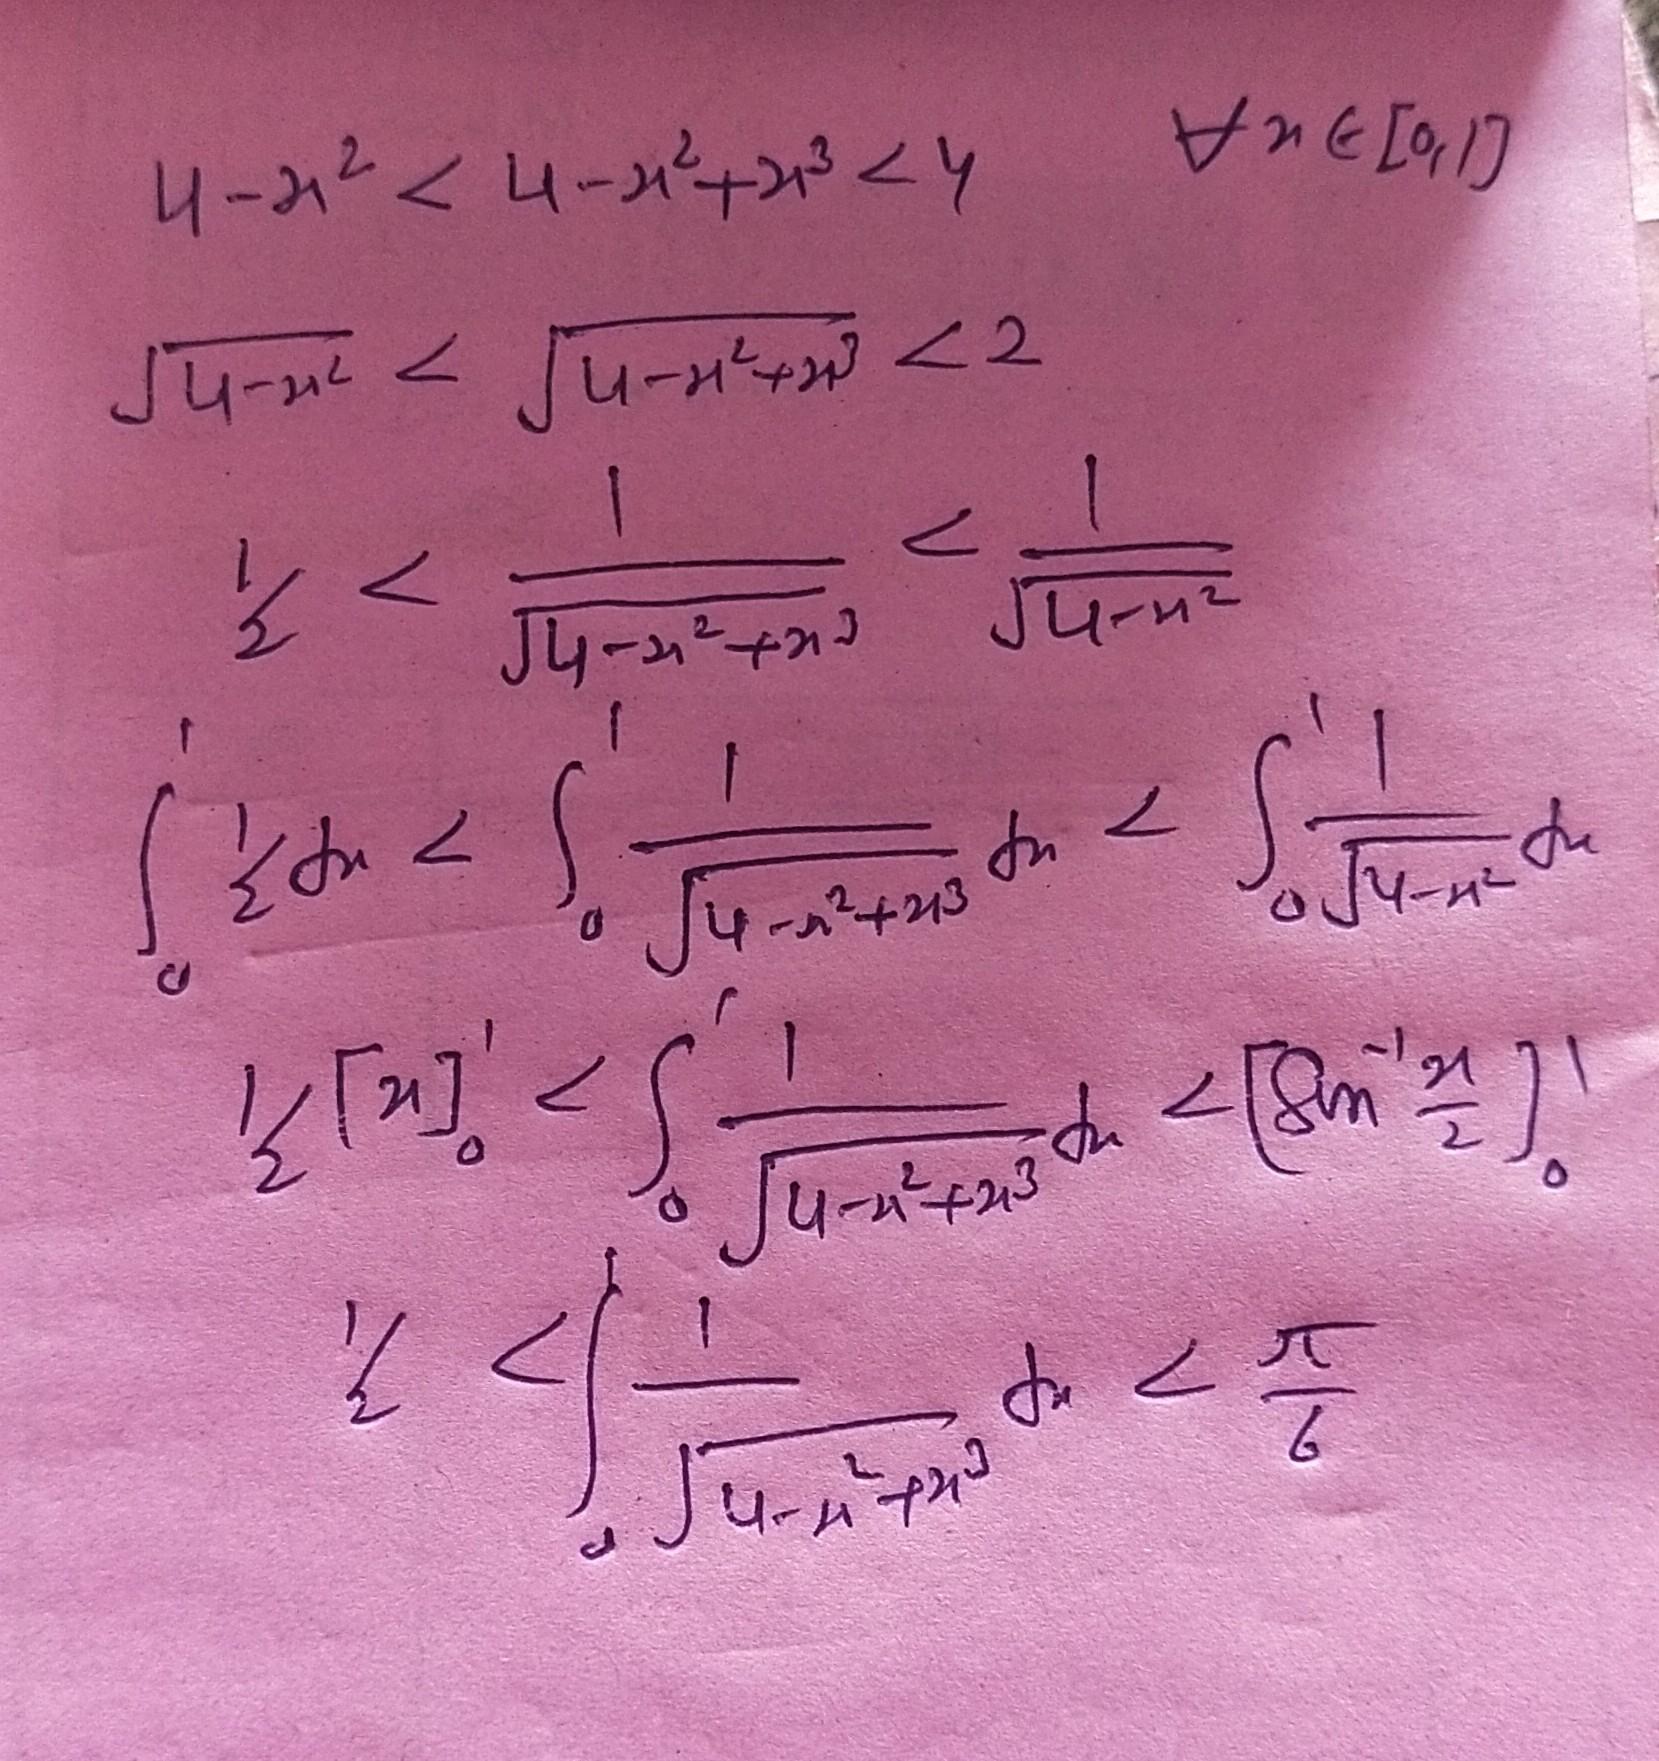 4-x² < 4-x²+x³ < 4 ∀x∈[0,1]
√(4-x²) < √(4-x²+x³) < 2
1/2 < 1/√(4-x²+x³) < 1/√(4-x²)
∫₀¹ 1/2 dx < ∫₀¹ 1/√(4-x²+x³) dx < ∫₀¹ 1/√(4-x²) dx
1/2 [x]₀¹ < ∫₀¹ 1/√(4-x²+x³) dx < [Sin⁻¹ x/2]₀¹
1/2 < ∫₀¹ 1/√(4-x²+x³) dx < π/6